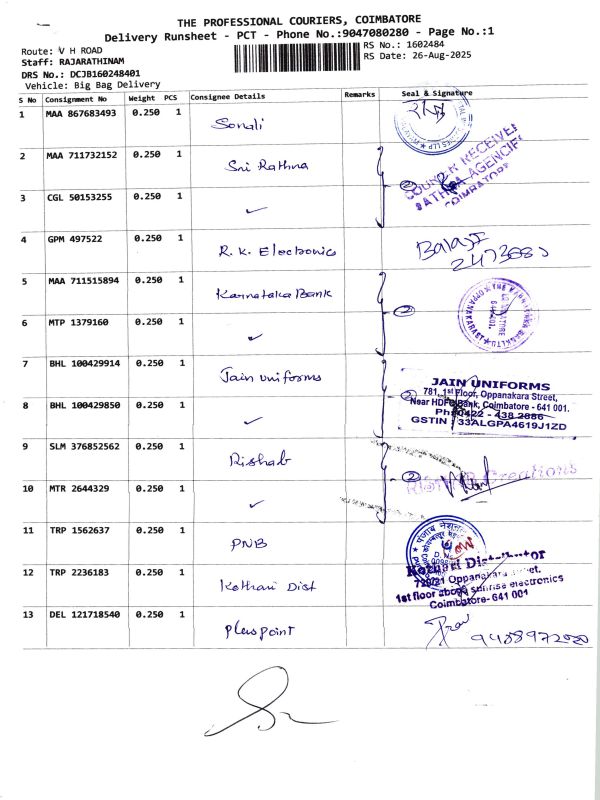 THE PROFESSIONAL COURIERS, COIMBATORE
Delivery Runsheet - PCT - Phone No.:9047080280 - Page No.:1
Route: V H ROAD
RS No.: 1602484
Staff: RAJARATHINAM
RS Date: 26-Aug-2025
DRS No.: DCJB160248401
Vehicle: Big Bag Delivery
S No Consignment No Weight PCS Consignee Details Remarks Seal & Signature
1 MAA 867683493 0.250 1 Sonali
2 MAA 711732152 0.250 1 Sri Rathna
COUNTER RECEIVED
SATHYA AGENCIES
COIMBATORE
3 CGL 50153255 0.250 1 ✓
4 GPM 497522 0.250 1 R.K. Electronics Balaji
5 MAA 711515894 0.250 1 Karnataka Bank
6 MTP 1379160 0.250 1 ✓ 2
7 BHL 100429914 0.250 1 Jain uniforms
JAIN UNIFORMS
781, 1st Floor, Oppanakara Street,
Near HDFC Bank, Coimbatore - 641 001.
Ph: 0422 - 438 2886
GSTIN : 33ALGPA4619J1ZD
8 BHL 100429850 0.250 1 ✓
9 SLM 376852562 0.250 1 Rishab
2 Creations
10 MTR 2644329 0.250 1 ✓
11 TRP 1562637 0.250 1 PNB
12 TRP 2236183 0.250 1 Kothari Dist
Kothari Distributor
Oppanakara Street,
1st floor above sunrise electronics
Coimbatore- 641 001
13 DEL 121718540 0.250 1